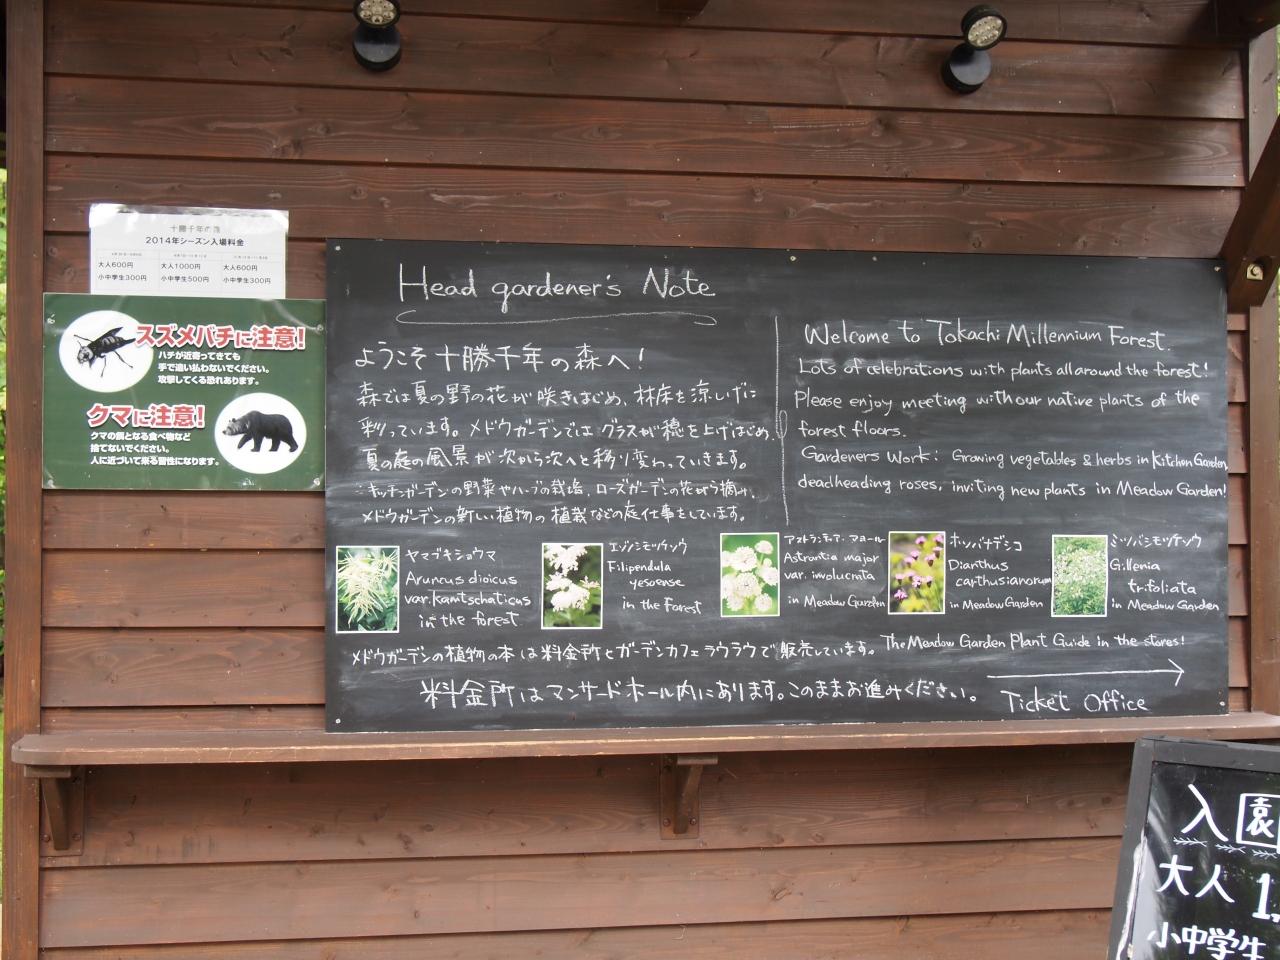 十勝千年の森
2014年シーズン入場料金
大人600円 大人1000円 大人600円
小中学生300円 小中学生500円 小中学生300円
スズメバチに注意!
ハチが近寄ってきても
手で追い払わないでください。
攻撃してくる恐れあります。
クマに注意!
クマの餌となる食べ物など
捨てないでください。
人に近づいて来る習性になります。
Head gardener's Note
ようこそ十勝千年の森へ!
森では夏の野の花が咲きはじめ、林床を涼しげに
彩っています。メドウガーデンではグラスが穂を上げはじめ、
夏の庭の風景が次から次へと移り変わっていきます。
キッチンガーデンの野菜やハーブの栽培、ローズガーデンの花がら摘み、
メドウガーデンの新しい植物の植栽などの庭仕事をしています。
Welcome to Tokachi Millennium Forest.
Lots of celebrations with plants all around the forest!
Please enjoy meeting with our native plants of the
forest floors.
Gardeners Work: Growing vegetables & herbs in Kitchen Garden,
deadheading roses, inviting new plants in Meadow Garden!
ヤマブキショウマ
Aruncus dioicus
var. kamtschaticus
in the forest
エゾノシモツケソウ
Filipendula
yesoense
in the Forest
アストランティア・マヨール
Astrantia major
var. involucrata
in Meadow Garden
ホソバナデシコ
Dianthus
carthusianorum
in Meadow Garden
ミツバシモツケソウ
Gillenia
trifoliata
in Meadow Garden
メドウガーデンの植物の本は料金所とガーデンカフェラウラウで販売しています。 The Meadow Garden Plant Guide in the stores!
料金所はマンサードホール内にあります。このままお進みください。
Ticket Office
入園
大人 1,
小中学生